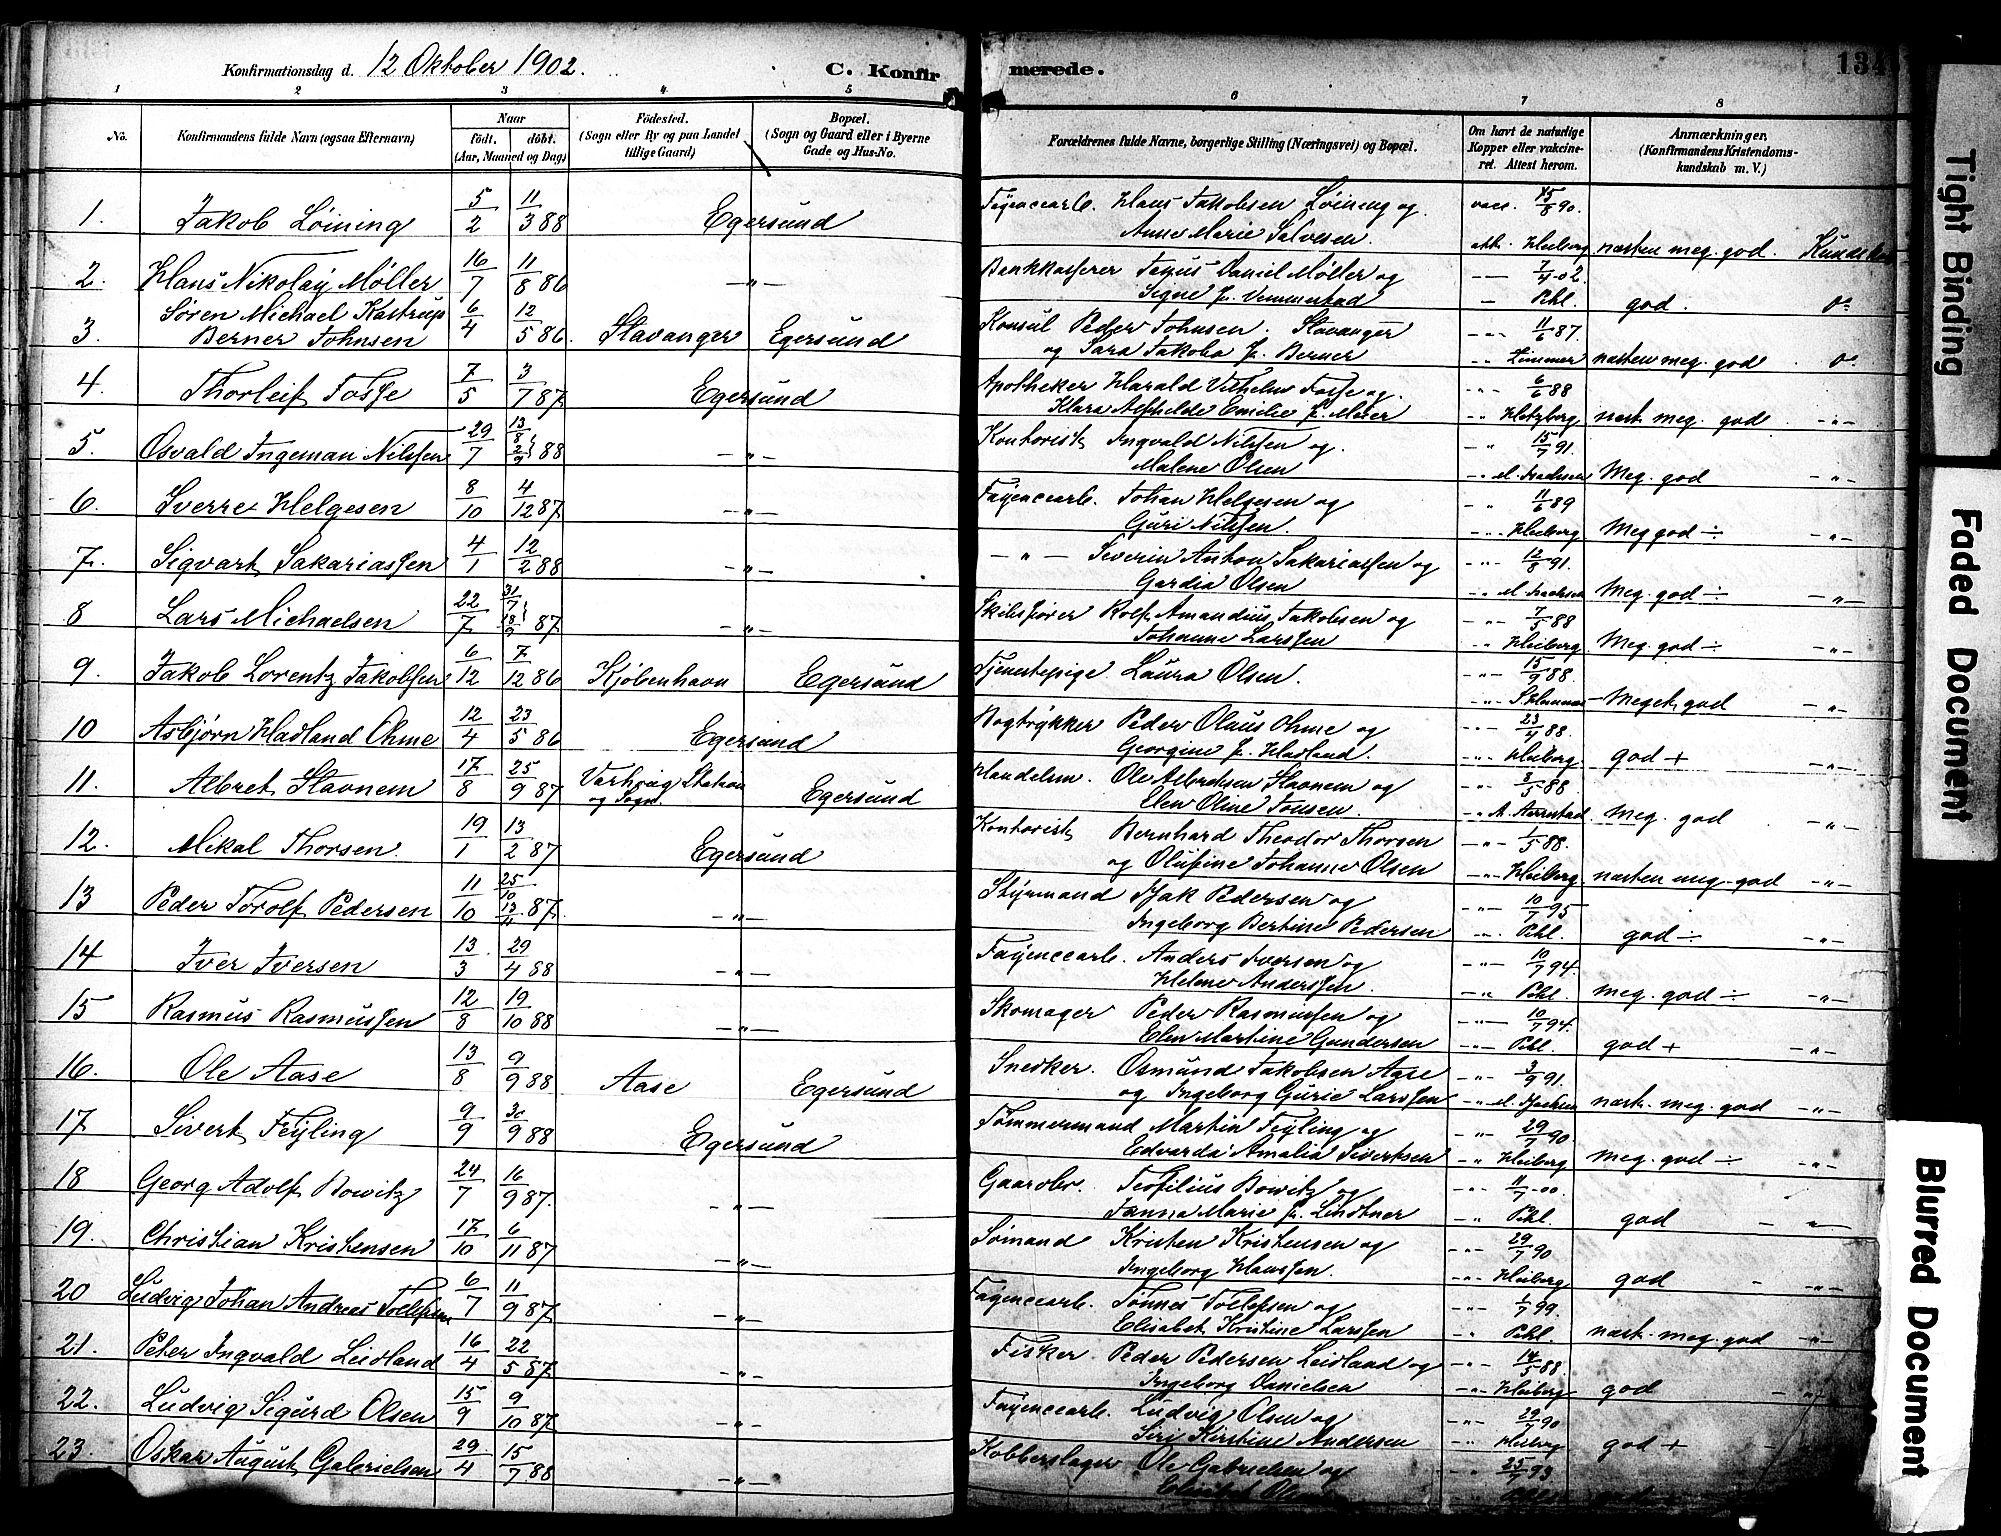 Konfirmationsdag d. 12 Oktober 1902. C. Konfirmerede. 134
1 2 3 4 5 6 7 8
No. Konfirmandens fulde Navn (ogsaa Efternavn) Naar født. døbt. (Aar, Maaned og Dag) Fødested. (Sogn eller By og paa Landet tillige Gaard) Bopæl. (Sogn og Gaard eller i Byerne Gade og Hus-No. Forældrenes fulde Navne, borgerlige Stilling (Næringsvei) og Bopæl. Om havt de naturlige Kopper eller vakcineret. Attest herom. Anmærkninger. (Konfirmandens Kristendomskundskab m. V.)
1. Jakob Løining 5/2 11/3 88 Egersund Fayencearb. Hans Jakobsen Løining og vacc. 15/8 90.
Anne Marie Salvesen. att. Heiberg næsten meg. god.
2. Hans Nikolay Møller 16/7 11/8 86 -"- Bankkasserer Daniel Møller og -"- 7/4 02.
Signe f. Vemmestad - Pihl. god. do
3. Søren Michael Kastrup Berner Johnsen 6/4 12/5 86. Stavanger Egersund Konsul Peder Johnsen. Stavanger -"- 11/6 87
og Sara Jakoba f. Berner " Zimmer næsten meg. god do
4. Thorleif Fosse 7/5 3/7 87. Egersund Apotheker Harald Vilhelm Fosse og -"- 6/6 88
Klara Emilie f. Meier næst. meg. god -"-
5. Osvald Ingeman Nilssen 29/7 13/8 2/9 88 -"- Kontorist Ingvald Nilssen og " 15/7 91.
Malene Olsen Meg. god -"-
6. Sverre Helgesen 8/10 4/12 87. -"- Fayencearb. Johan Helgesen og " 11/6 89
Guri Nilssen. -"- Heiberg Meg god ÷ -"-
7. Sigvart Sakariassen 4/1 12/2 88 -"- -"- Severin Anton Sakariassen og -"- 12/8 91.
Gardia Olsen Meg. god ÷ -"-
8 Lars Michaelsen 22/7 31/7 18/9 87 -"- Skibsfører Rolf Amandius Jakobsen og -"- 7/5 88
Johanne Larssen " Heiberg Meg. god ÷ -"-
9. Jakob Lorentz Jakobsen 6/12 7/12 86 Kjøbenhavn Egersund Tjenestepige Laura Olsen. -"- 15/9 88.
Meget god -"-
10 Asbjørn Hadland Ohme 12/4 23/5 86 Egersund Bogtrykker Peder Olaus Ohme og -"- 23/4 88.
Georgine f. Hadland. -"- Heiberg god + -"-
11. Albret Stavnem 17/8 25/9 87 Varhaug Station og Sogn Egersund Handelsm. Ole Albretsen Stavnem og -"- 3/5 88
Elen Oline Tonsen. meg. god -"-
12. Mikal Thorsen. 19/1 13/2 87 Egersund Kontorist Bernhard Theodor Thorsen -"- 1/5 88.
og Olufine Johanne Olsen -"- Heiberg. næsten meg. god -"-
13 Peder Torolf Pedersen 11/10 25/10 13/11 87. -"- Styrmand Isak Pedersen og -"- 10/7 95
Ingeborg Bertine Pedersen -"- Pihl. god ÷ -"-
14 Iver Iversen 13/3 29/4 88 -"- Fayencearb. Anders Iversen og -"- 10/7 94.
Helene Anderssen. -"- Pihl. meg. god ÷ -"-
15 Rasmus Rasmussen 12/8 19/10 88 -"- Skomager Peder Rasmussen og -"- 10/7 94.
Elen Martine Gundersen -"- Pihl. god + -"-
16. Ole Aase 13/8 9/9 88 Aase Egersund Snedker. Osmund Jakobsen Aase -"- 3/9 91.
og Ingeborg Gurie Larssen næst. meg. god -"-
17 Sivert Feyling 9/9 30/9 88 Egersund Tømmermand Martin Feyling og -"- 29/7 90
Edvarda Amalia Sivertsen -"- Heiberg meg. god ÷ -"-
18 Georg Adolf Bowitz 24/7 16/9 87. -"- Gaardbr. Teofilius Bowitz og -"- 11/7 00.
Fanna Marie f. Lindtner -"- Pihl. god -"-
19. Christian Kristensen 17/10 6/11 87 -"- Sømand Kristen Kristensen og -"- 29/7 90
Ingeborg Klaussen. -"- Heiberg god -"-
20 Ludvig Johan Andreas Tollefsen 6/7 11/9 87 -"- Fayencearb. Tønnes Tollefsen og -"- 1/7 99.
Elisabet Kristine Larssen -"- Pihl. næst. meg. god -"-
21. Peter Ingvald Leidland 16/4 22/5 87 -"- Fisker Peder Pedersen Leidland og -"- 14/5 88
Ingeborg Danielsen -"- Heiberg god -"-
22. Ludvig Sigurd Olsen 15/9 9/10 87. -"- Fayencearb. Ludvig Olsen og -"- 29/7 90
Siri Kirstine Andersen -"- Heiberg god +
23. Oskar August Gabrielsen 29/4 15/7 88 -"- Kobberslager Ole Gabrielsen og -"- 25/7 93
Tight Binding
Faded Document
Blurred Document